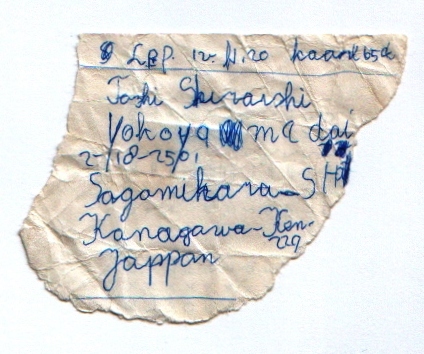 LBP. 12. H.20 kaart 65ct
Toshi Shiraishi
Yokoya ma dai
2-/18-2501
Sagamihara-SHI
Kanagawa-Ken-
229
Jappan